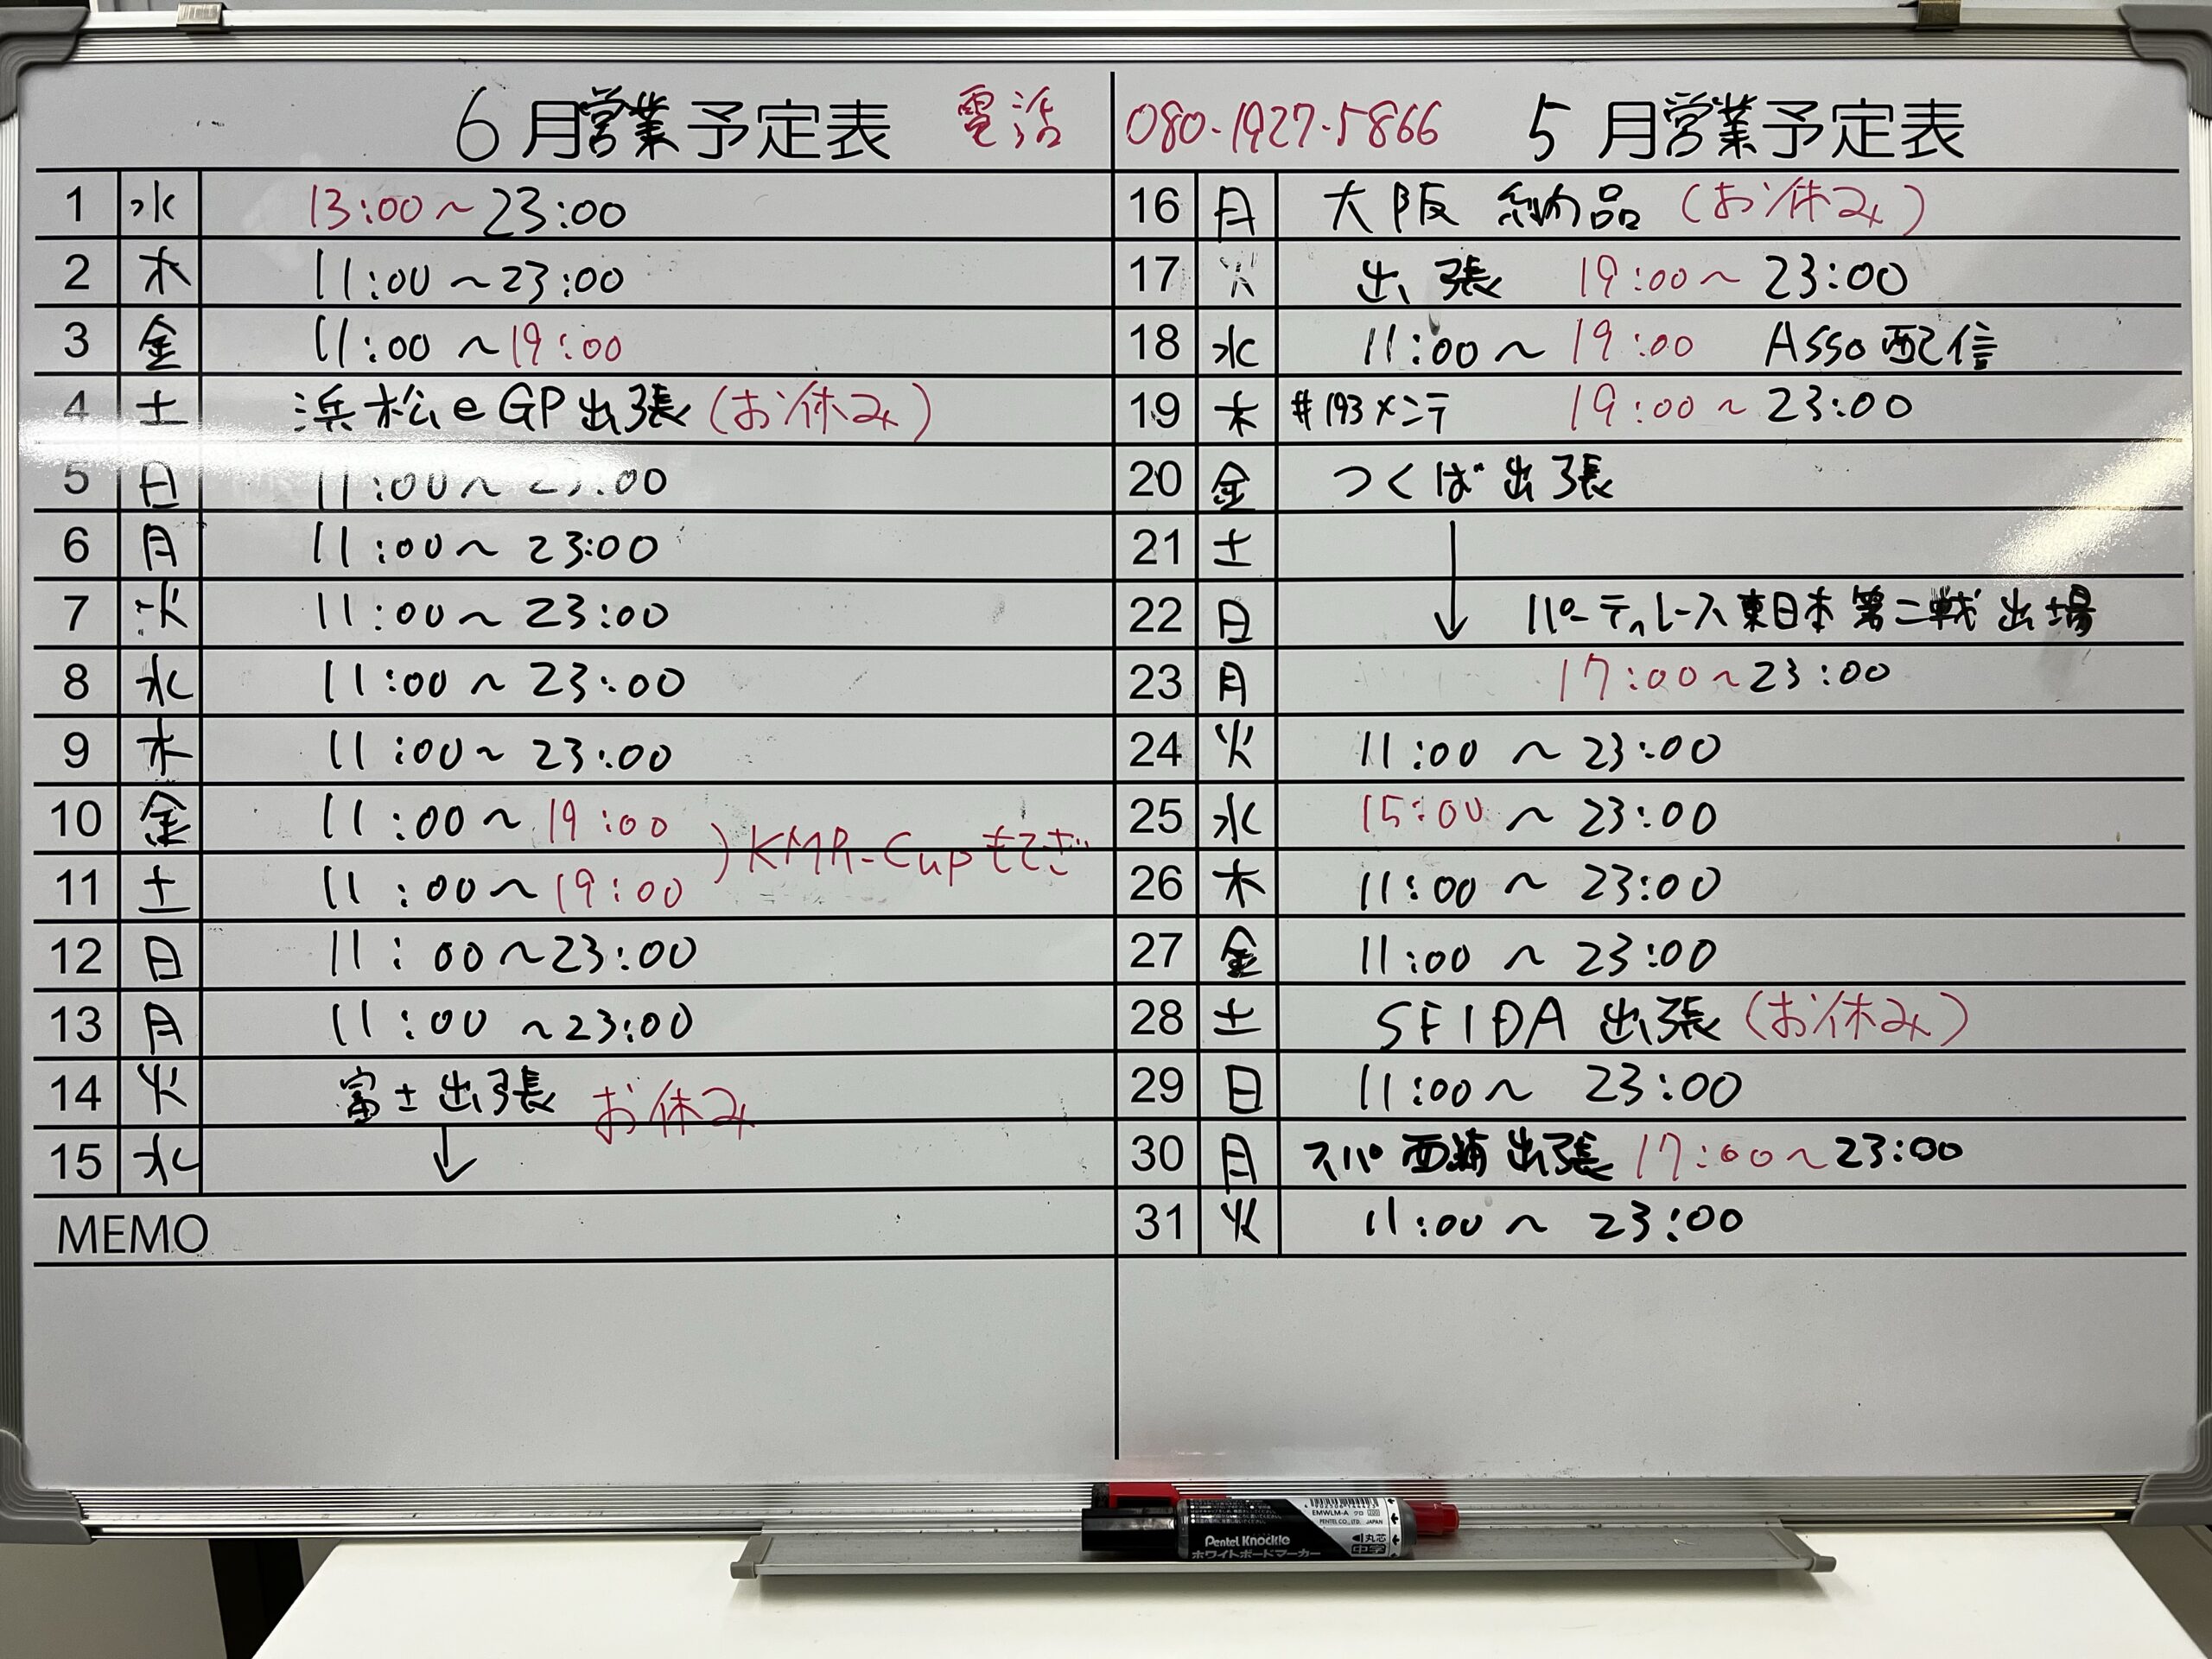 6月営業予定表 電話 080-1927-5866
1 水 13:00～23:00
2 木 11:00～23:00
3 金 11:00～19:00
4 土 浜松eGP出張(お休み)
5 日 11:00～23:00
6 月 11:00～23:00
7 火 11:00～23:00
8 水 11:00～23:00
9 木 11:00～23:00
10 金 11:00～19:00
)KMR-Cupもてぎ
11 土 11:00～19:00
12 日 11:00～23:00
13 月 11:00～23:00
14 火 富士出張 お休み
15 水 ↓
MEMO
5月営業予定表
16 月 大阪 納品 (お休み)
17 火 出張 19:00～23:00
18 水 11:00～19:00 Asso配信
19 木 #193メンテ 19:00～23:00
20 金 つくば出張
21 土
22 日 ↓ パーティレース東日本第二戦出場
23 月 17:00～23:00
24 火 11:00～23:00
25 水 15:00～23:00
26 木 11:00～23:00
27 金 11:00～23:00
28 土 SFIDA 出張(お休み)
29 日 11:00～23:00
30 月 スパ西浦出張 17:00～23:00
31 火 11:00～23:00
EMWLM-A クロ
PENTEL CO., LTD. JAPAN
Pentel Knockle
ホワイトボードマーカー
丸芯
中字